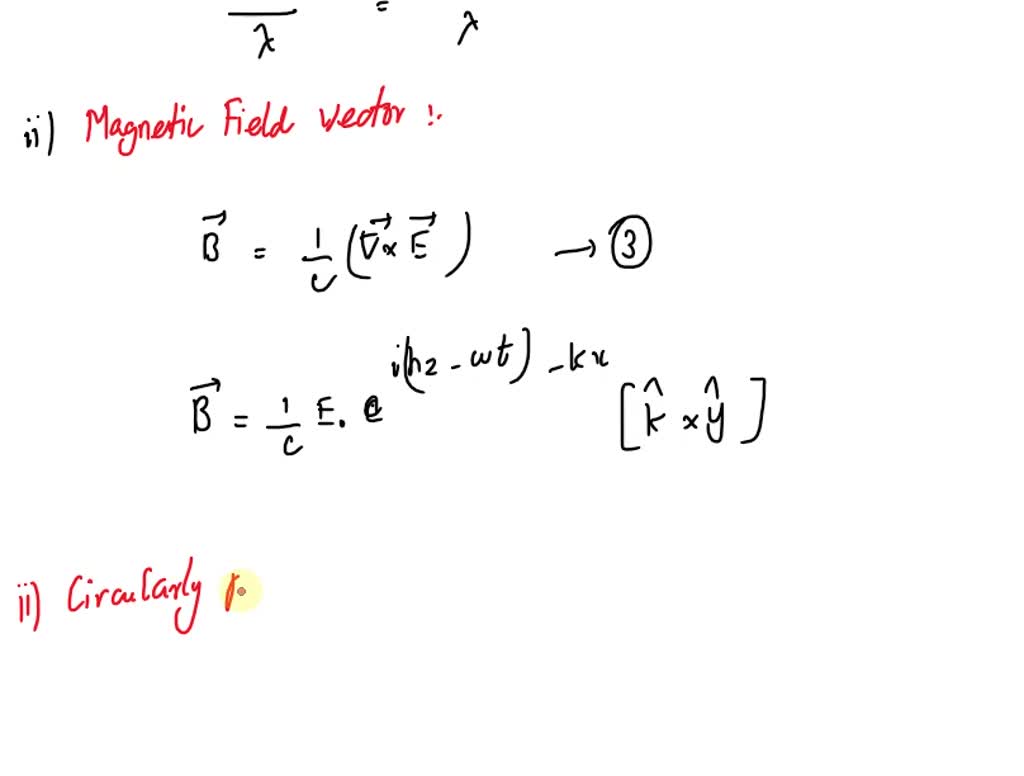 λ = λ
ii) Magnetic Field vector :.
B⃗ = 1/c (∇⃗ × E⃗) → ③
B⃗ = 1/c E. e^{i(hz - ωt) - kx} [k̂ × ŷ]
ii) Circularly p